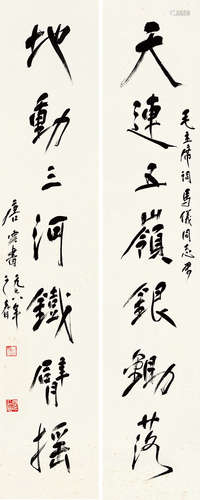 毛主席詞馬儀同志屬
天連五嶺銀鋤落
地動三河鐵臂搖
唐雲書一九七六年